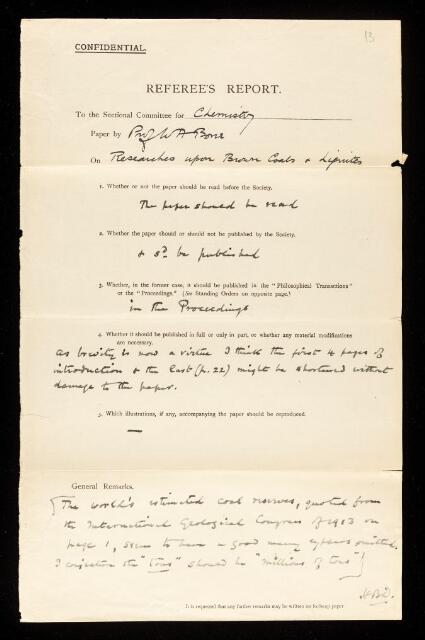 13
CONFIDENTIAL.
REFEREE'S REPORT.
To the Sectional Committee for Chemistry
Paper by Prof W A Bone
On Researches upon Brown Coals & Lignites
1. Whether or not the paper should be read before the Society.
The paper should be read
2. Whether the paper should or should not be published by the Society.
& sd. be published
3. Whether, in the former case, it should be published in the "Philosophical Transactions"
or the "Proceedings." (See Standing Orders on opposite page.)
in the Proceedings
4. Whether it should be published in full or only in part, or whether any material modifications
are necessary.
as brevity is now a virtue I think the first 4 pages of
introduction & the last (p. 22) might be shortened without
damage to the paper.
5. Which illustrations, if any, accompanying the paper should be reproduced.
—
General Remarks.
[The world's estimated coal reserves, quoted from
the International Geological Congress of 1913 on
page 1, seem to have a good many cyphers omitted.
I conjecture the "tons" should be "millions of tons"]
H.B.D.
It is requested that any further remarks may be written on foolscap paper